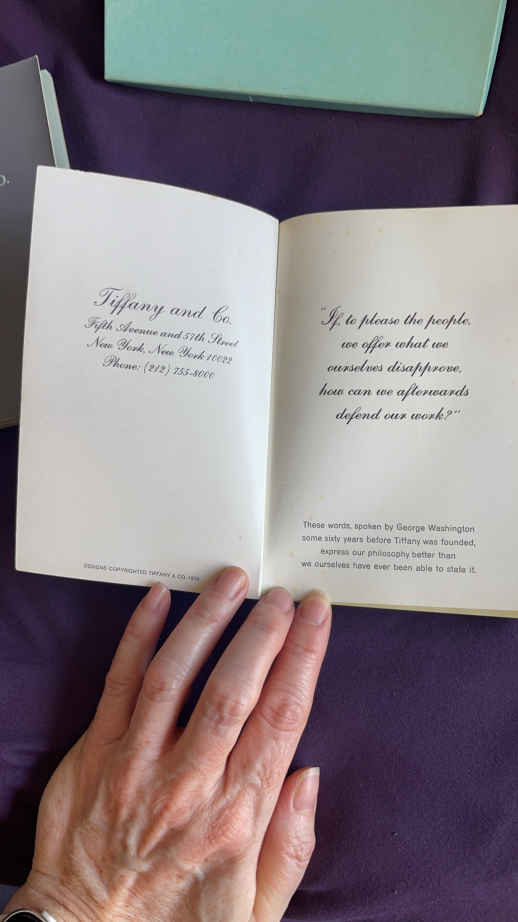 o.
Tiffany and Co.
Fifth Avenue and 57th Street
New York, New York 10022
Phone: (212) 755-8000
DESIGNS COPYRIGHTED TIFFANY & CO.
"If, to please the people,
we offer what we
ourselves disapprove,
how can we afterwards
defend our work?"
These words, spoken by George Washington
some sixty years before Tiffany was founded,
express our philosophy better than
we ourselves have ever been able to state it.